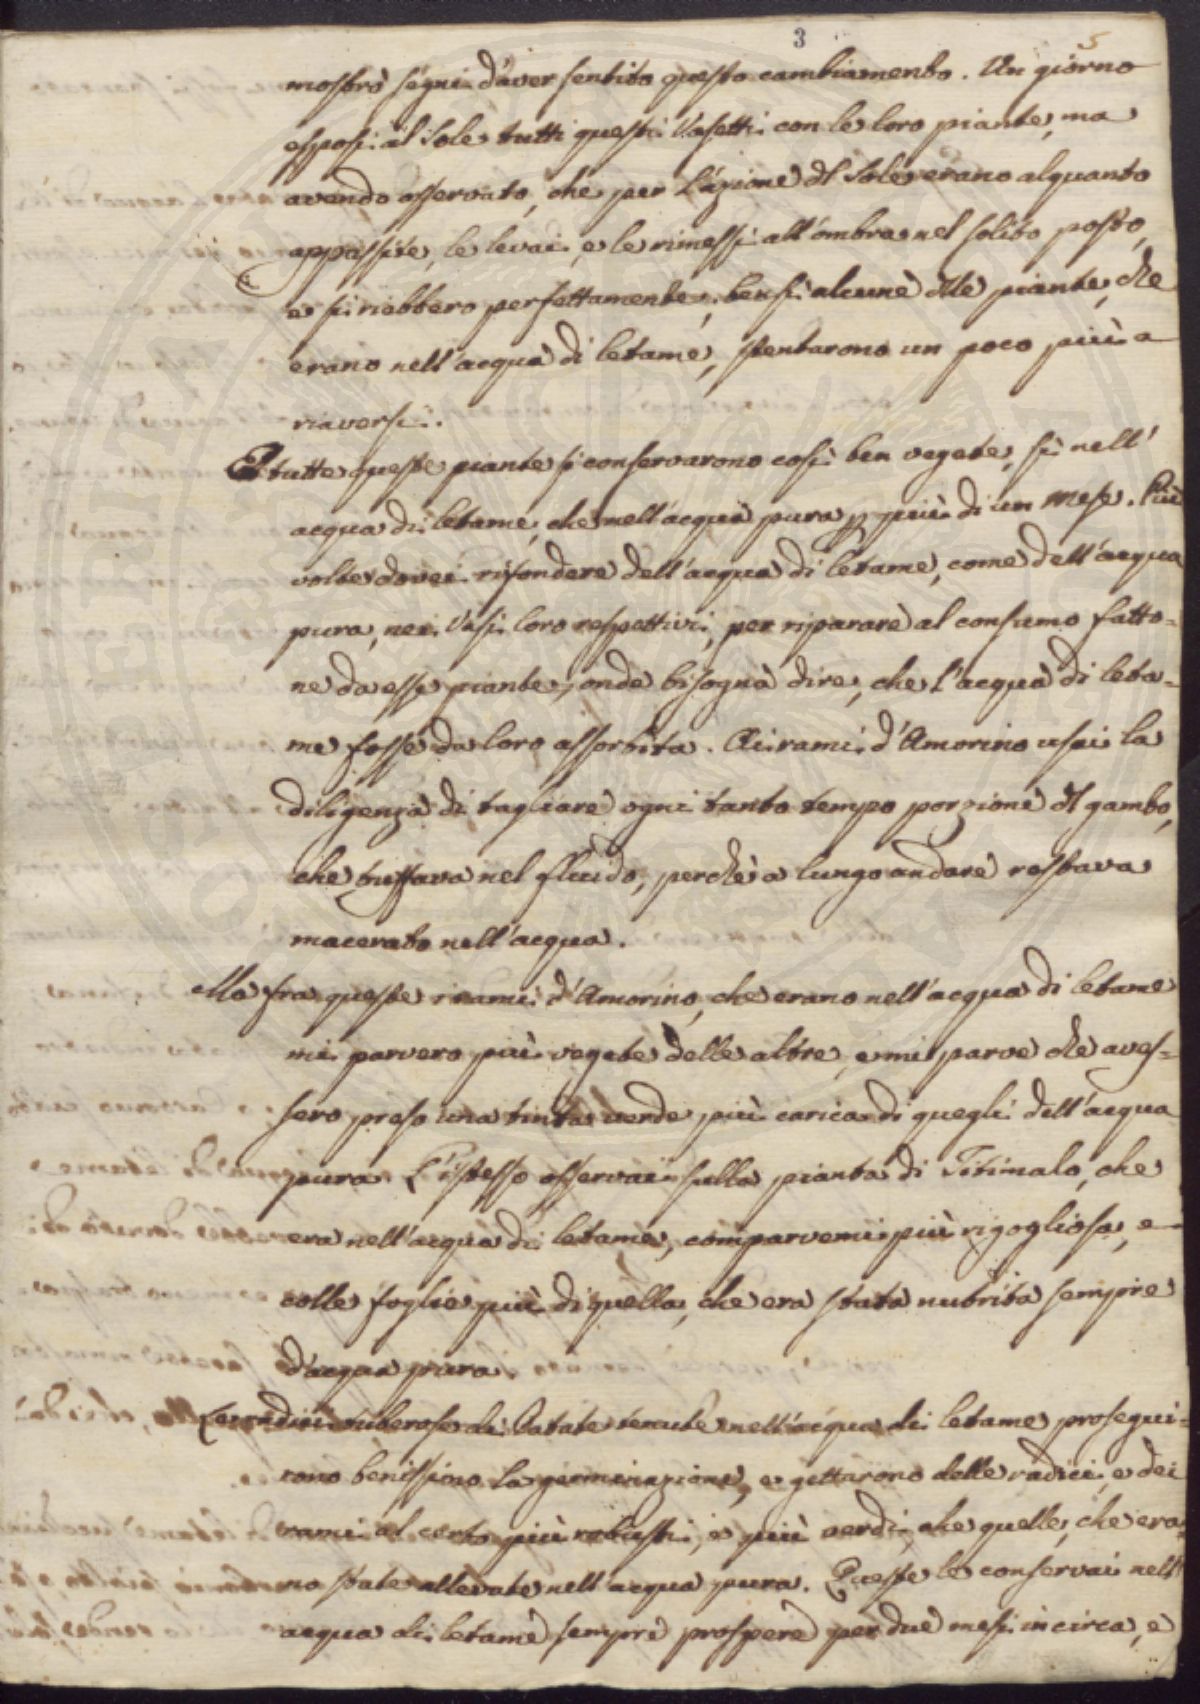 3 5
mostrò segni d'aver sentito questo cambiamento. Un giorno
esposi al Sole tutti questi Vasetti con le loro piante, ma
avendo osservato, che per l'azione dl Sole erano alquanto
appassite, le levai, e le rimessi all'ombra nel solito posto,
e si riebbero perfettamente; bensì alcune dlle piante, che
erano nell'acqua di letame, stentarono un poco più a
riaversi.
E tutte queste piante si conservarono così ben vegete, sì nell'
acqua di letame, che nell'acqua pura p più di un mese. Più
volte dovei rifondere dell'acqua di letame, come dell'acqua
pura, nei Vasi loro respettivi, per riparare al consumo fatto-
ne da esse piante, onde bisogna dire, che l'acqua di leta-
me fosse da loro assorbita. Ai rami d'Amorino usai la
diligenza di tagliare ogni tanto tempo porzione dl gambo,
che tuffava nel fluido, perchè a lungo andare restava
macerato nell'acqua.
Ma fra queste i rami d'Amorino, che erano nell'acqua di letame
mi parvero più vegete delle altre, e mi parve che aves-
sero preso una tinta verde più carica di quegli dell'acqua
pura. L'istesso osservai sulla pianta di Titimalo, che
era nell'acqua di letame, comparvemi più rigogliosa, e
colle foglie più di quella, che era stata nutrita sempre
d'acqua pura.
Le radici tuberose di Patate tenute nell'acqua di letame prosegui-
rono benissimo la germinazione, e gettarono delle radici, e dei
rami al certo più robusti, e più verdi, che quelle, che era-
no state allevate nell'acqua pura. Queste le conservai nell'
acqua di letame sempre prospere per due mesi in circa, e